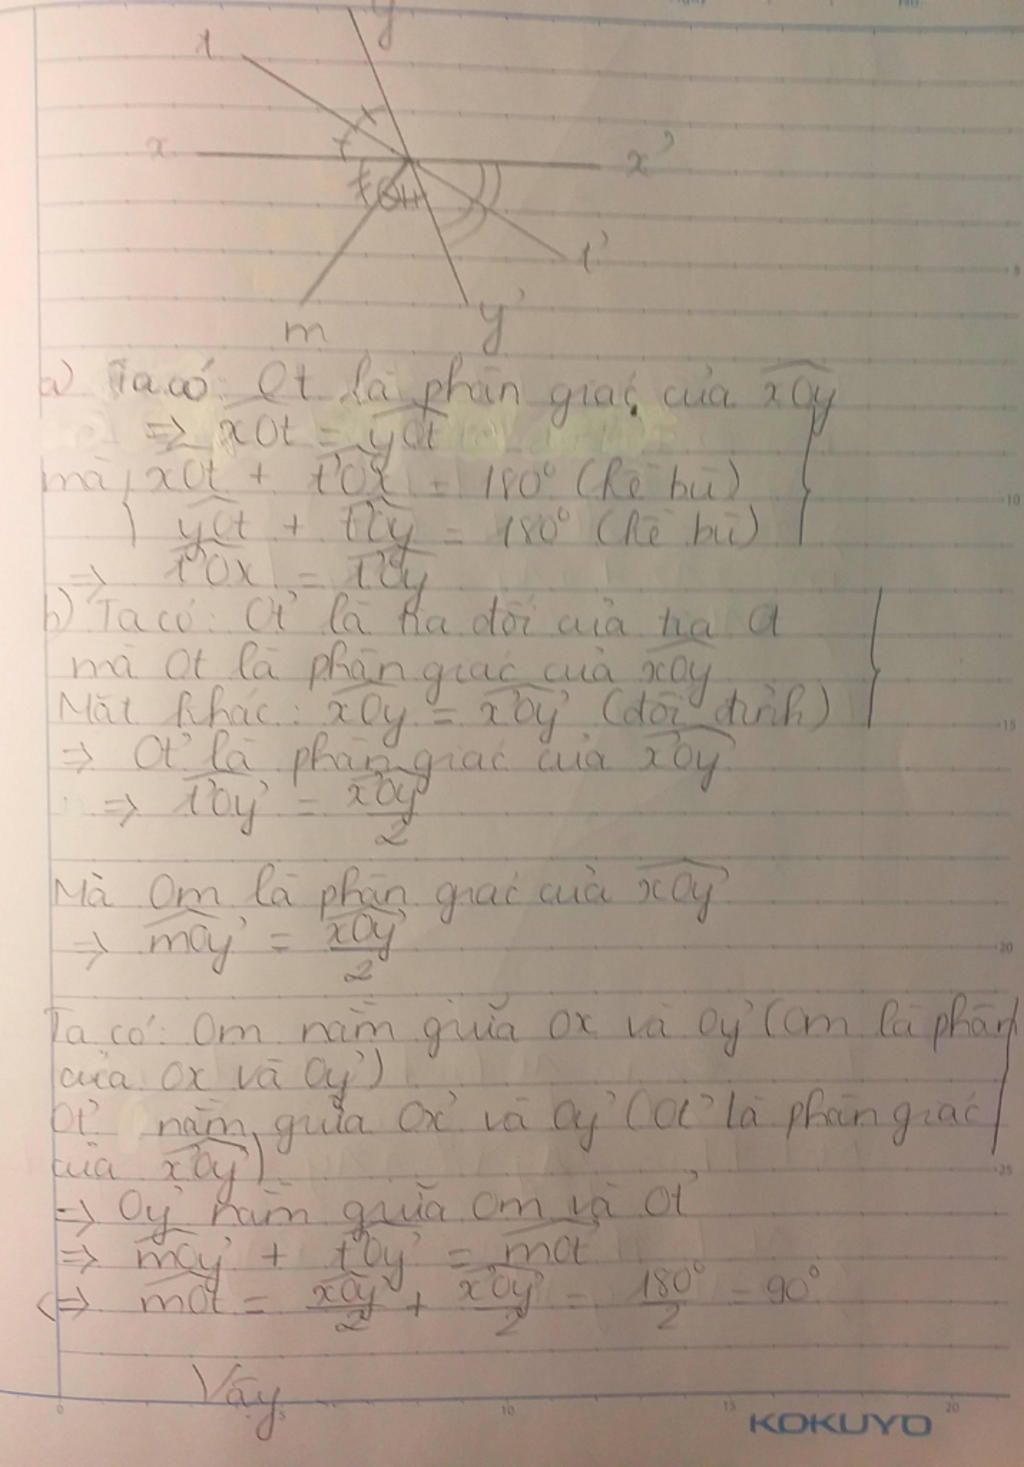 y
t
x
x'
t'
m
y'
a) Ta có: Ot là phân giác của xOy
=> xOt = yOt
mà xOt + t'Ox = 180° (kề bù)
yOt + t'Oy = 180° (kề bù)
=> t'Ox = t'Oy
b) Ta có: Ot' là tia đối của tia Ot
mà Ot là phân giác của xOy
Mặt khác: xOy = x'Oy' (đối đỉnh)
=> Ot' là phân giác của x'Oy'
=> t'Oy' = x'Oy'/2
Mà Om là phân giác của xOy'
=> mOy' = xOy'/2
Ta có: Om nằm giữa Ox và Oy' (Om là phân
của Ox và Oy')
Ot' nằm giữa Ox' và Oy' (Ot' là phân giác
của x'Oy')
=> Oy' nằm giữa Om và Ot'
=> mOy' + t'Oy' = mOt'
<=> mOt' = xOy'/2 + x'Oy'/2 = 180°/2 = 90°
Vậy
KOKUYO